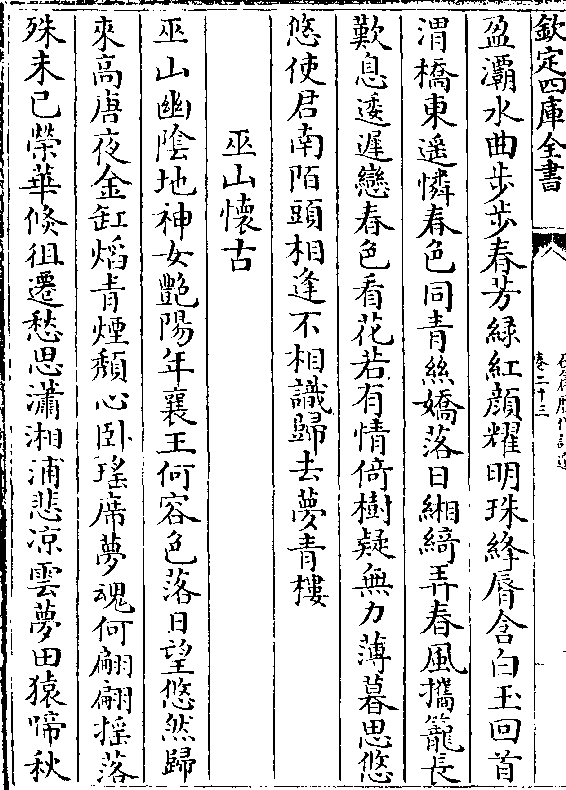 欽定四庫全書
卷二十三
盈灞水曲步步春芳緑紅顔耀明珠絳脣含白玉回首
渭橋東遥憐春色同青絲嬌落日緗綺弄春風攜籠長
歎息逶遲戀春色看花若有情倚樹疑無力薄暮思悠
悠使君南陌頭相逢不相識歸去夢青樓
巫山懷古
巫山幽陰地神女艷陽年襄王何容色落日望悠然歸
來高唐夜金缸熖青煙頽心卧瑤席夢魂何翩翩揺落
殊未已榮華倐徂遷愁思瀟湘浦悲凉雲夢田猿啼秋